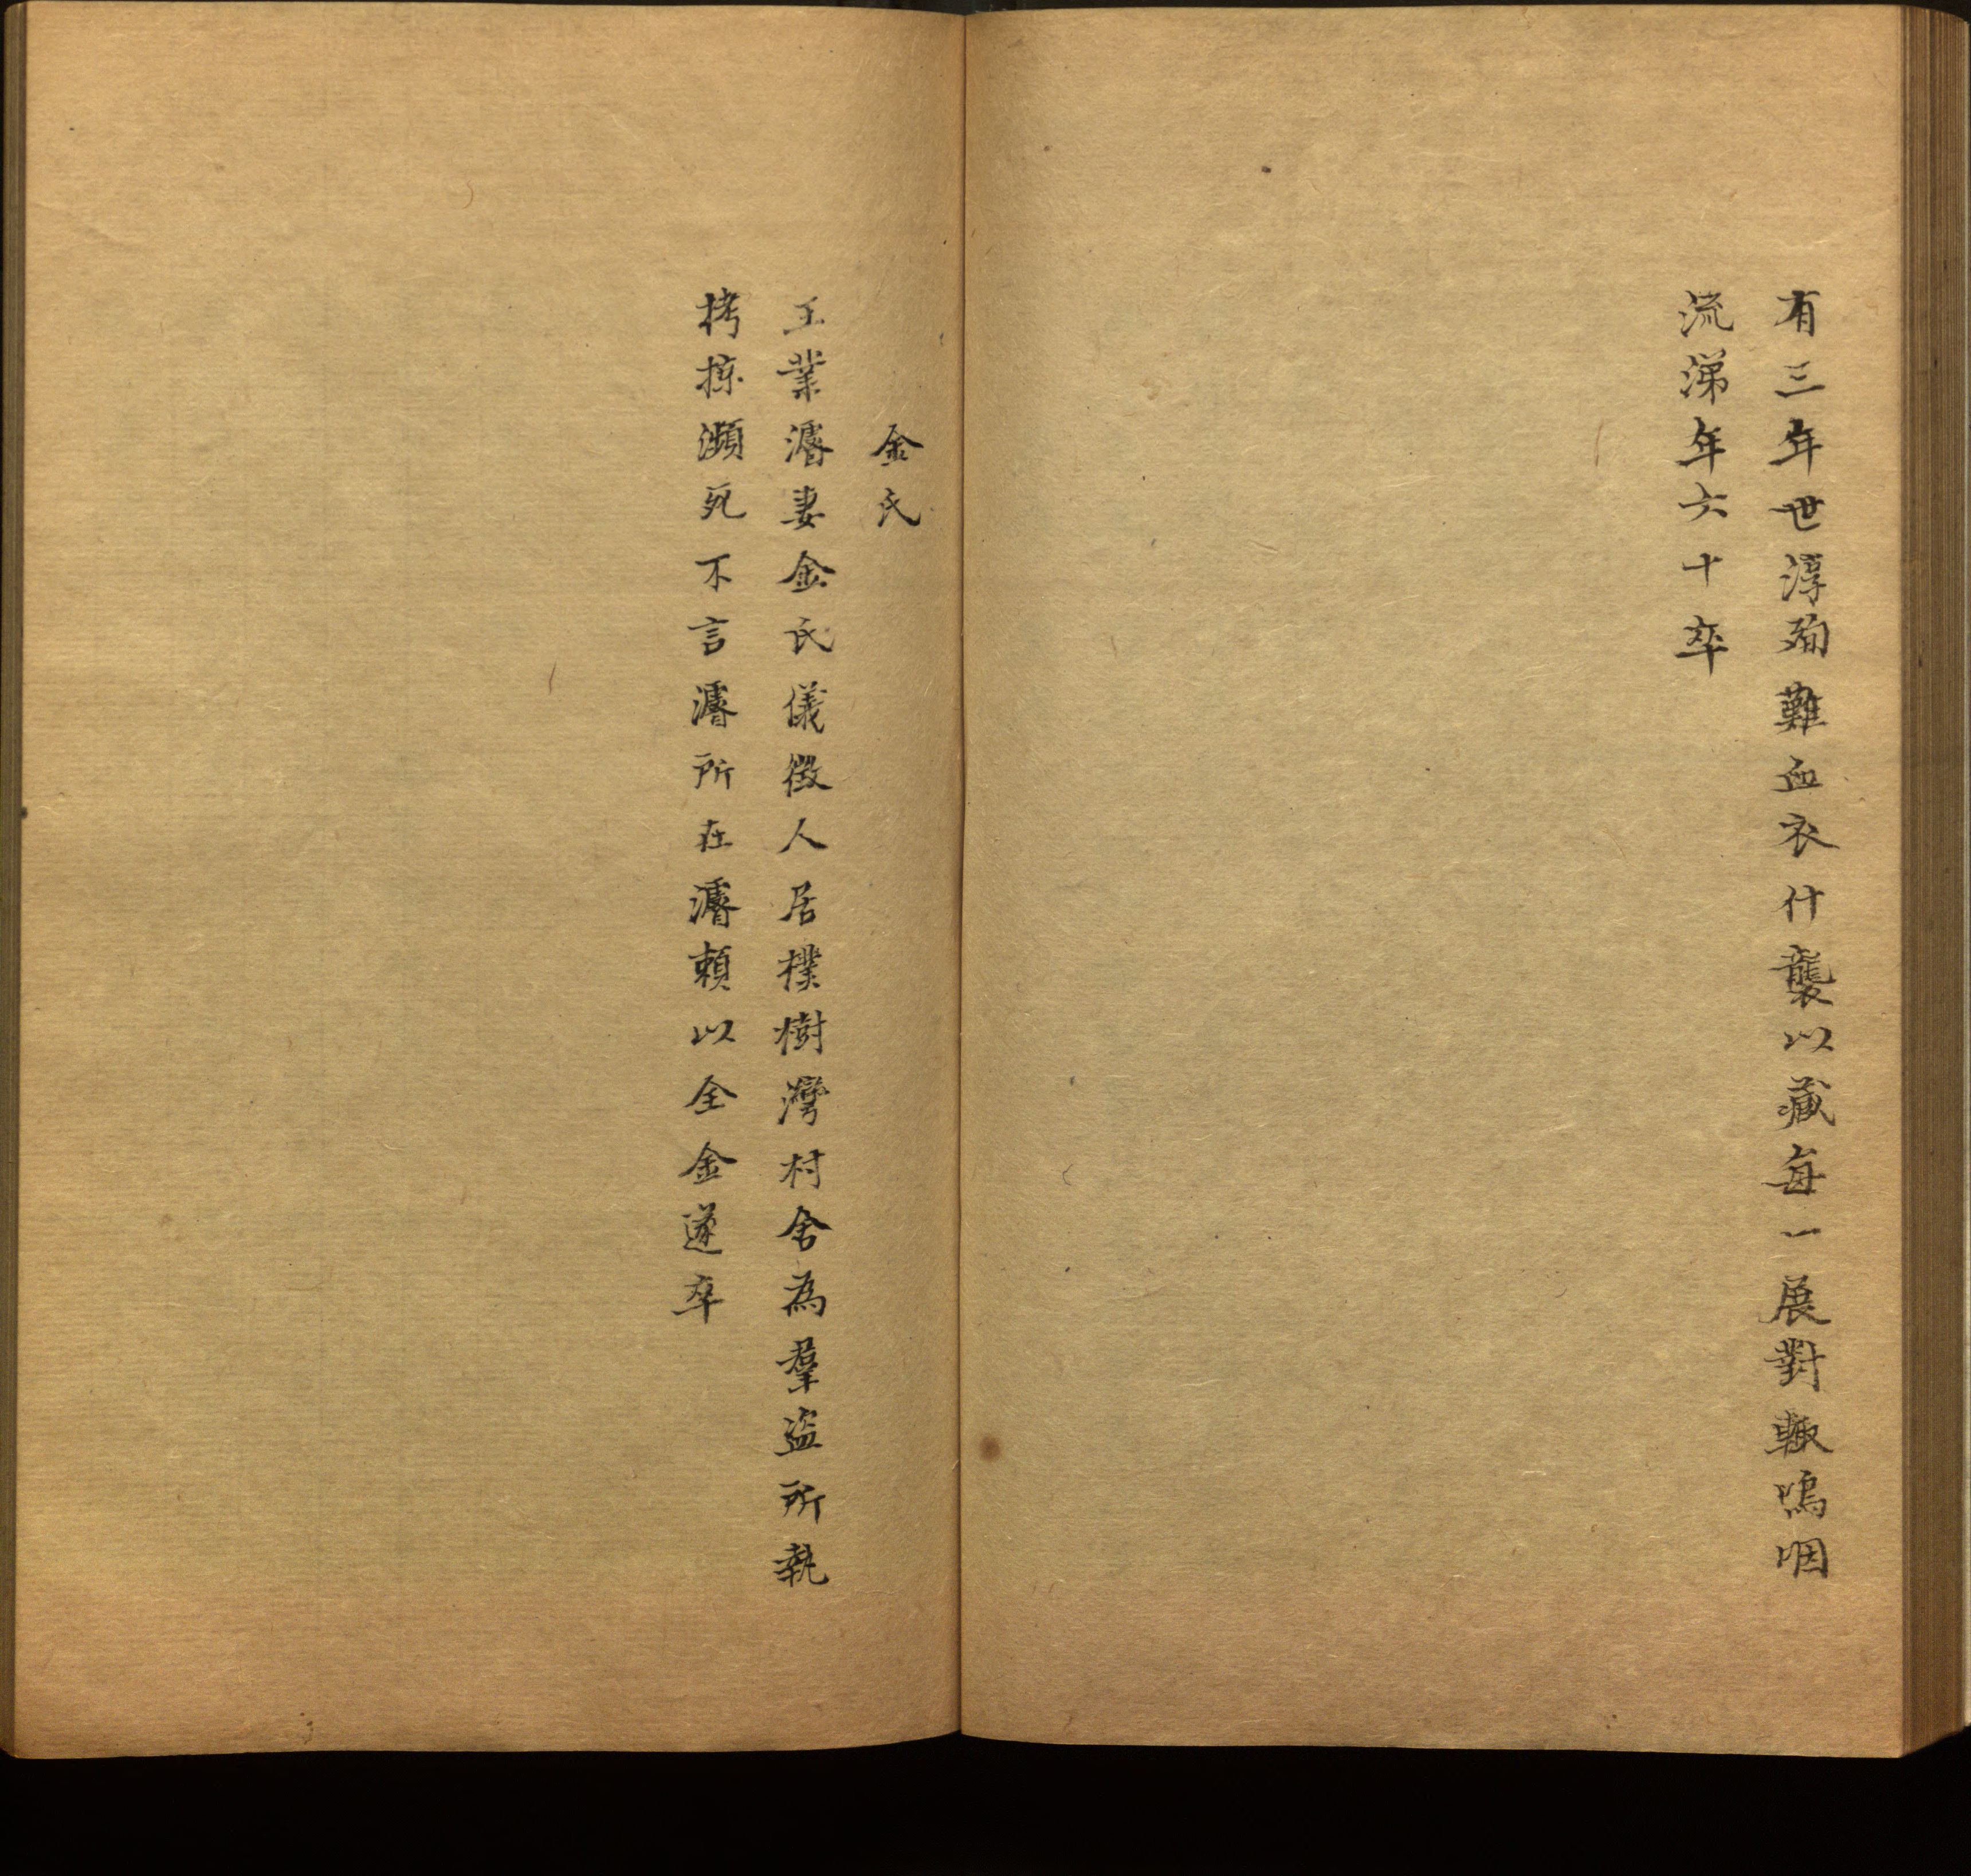 有三年世淳殉難血衣什襲以藏每一展對輒嗚咽
流涕年六十卒
金氏
王業濬妻金氏儀徵人居樸樹灣村舍為羣盜所執
拷掠瀕死不言濬所在濬賴以全金遂卒